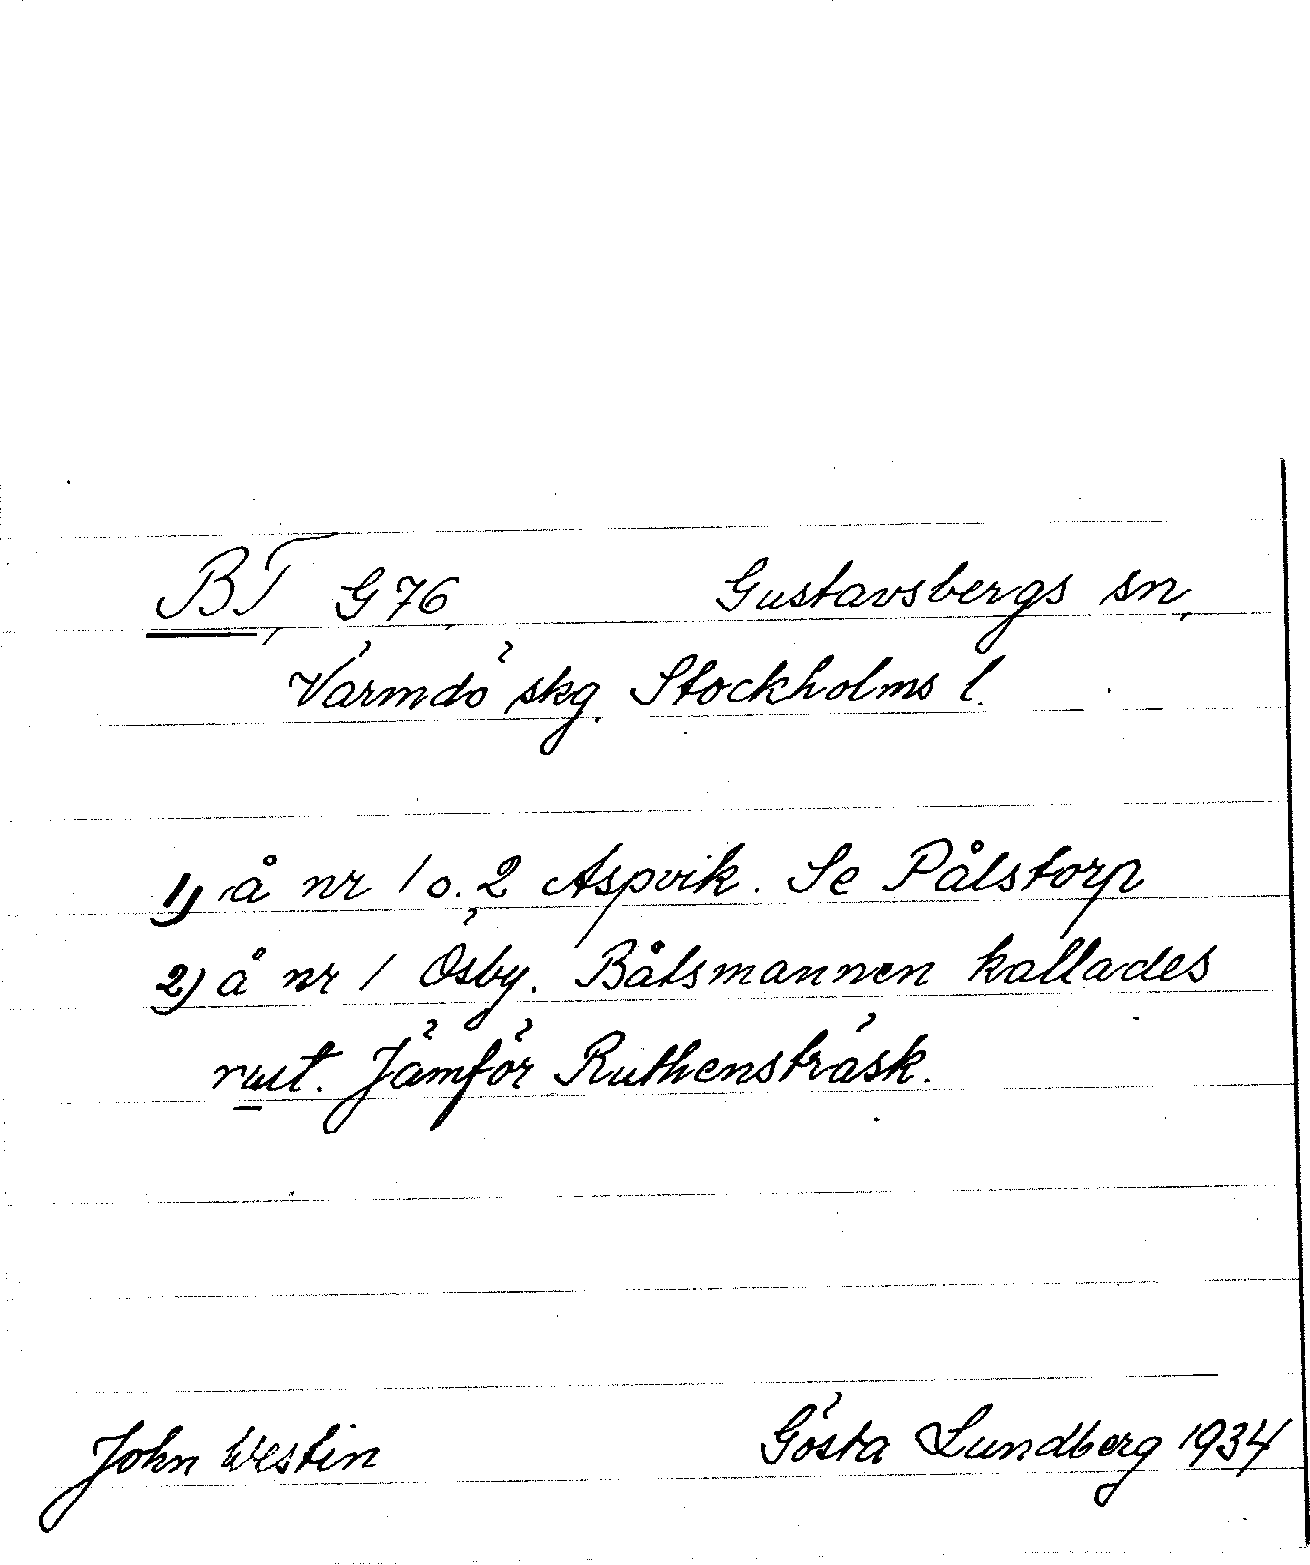 BT, G 76, Gustavsbergs sn,
Värmdö skg. Stockholms l.
1) å nr 1 o. 2 Aspvik. Se Pålstorp
2) å nr 1 Ösby. Båtsmannen kallades
rut. Jämför Ruthensträsk.
John Westin Gösta Lundberg 1934